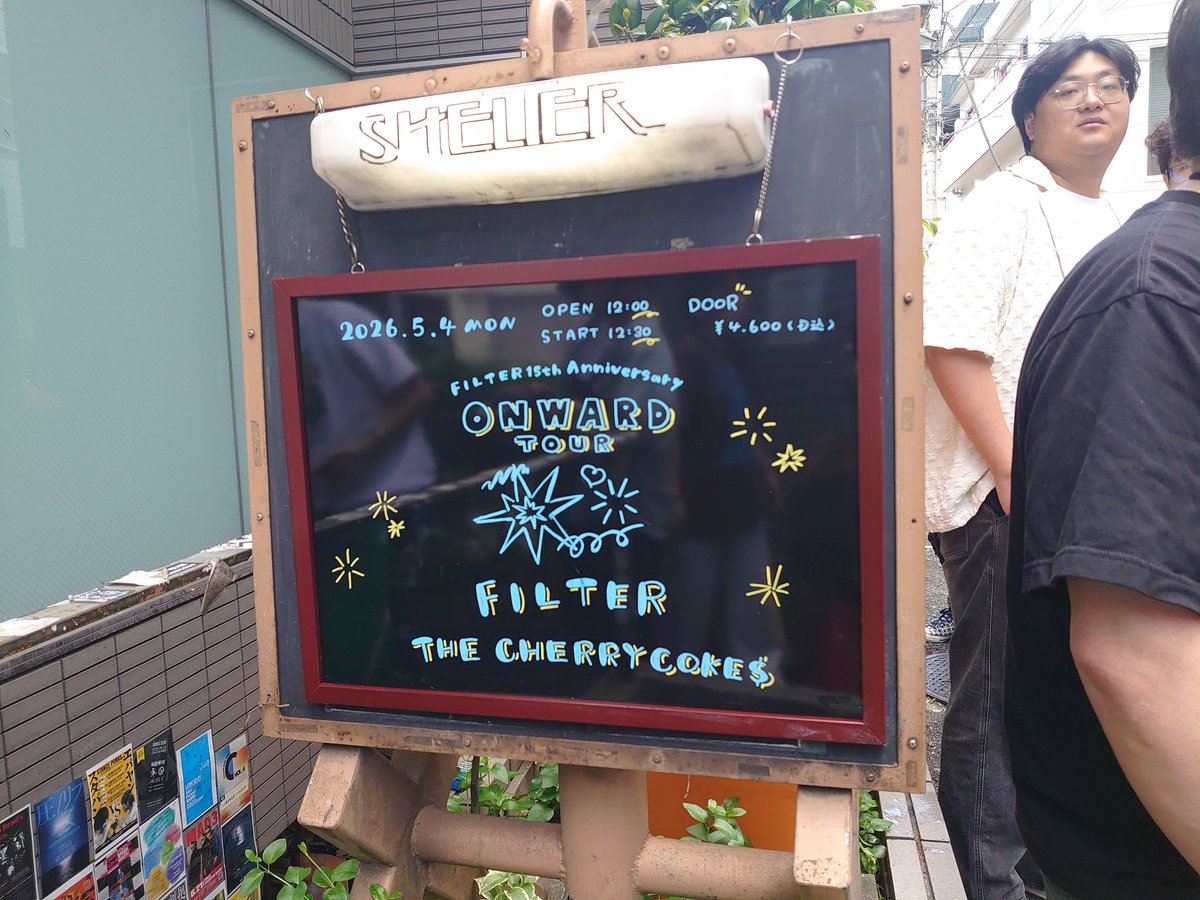 SHELTER
2026.5.4 MON
OPEN 12:00
START 12:30
DOOR
¥4.600(D込)
FILTER 15th Anniversary
ONWARD
TOUR
FILTER
THE CHERRY COKE$